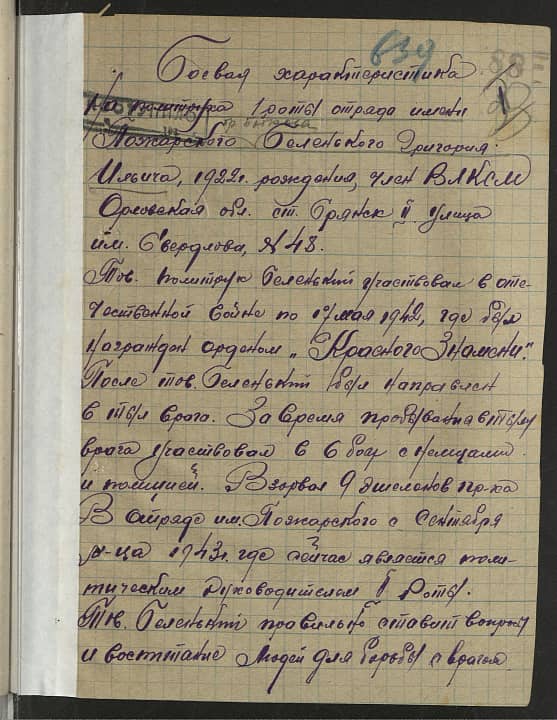 639
Боевая характеристика
На политрука 1 роты отряда имени
Пожарского Беленького Григория
Ильича, 1922г. рождения, член ВЛКСМ
Орловская обл. ст. Брянск II улица
им. Свердлова, №48.
Тов. политрук Беленький участвовал в оте-
чественной войне по 17 мая 1942, где был
награжден орденом „Красного Знамени".
После тов. Беленький был направлен
в тыл врага. За время пробывания в тылу
врага участвовал в 6 боях с немцами
и полицией. Взорвал 9 эшелонов пр-ка
В отряде им. Пожарского с сентября
м-ца 1943г. где сейчас является поли-
тическим руководителем II роты.
Тов. Беленький правильно ставит вопросы
и воспитание людей для борьбы с врагом.